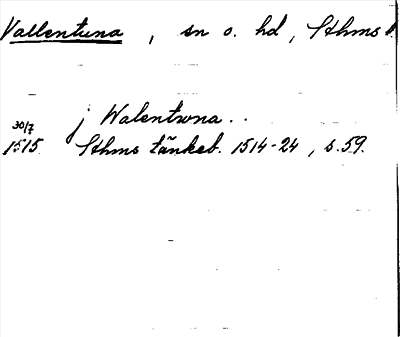 Vallentuna, sn o. hd, Sthms l.
j Walentwna..
30/7
1515. Sthms tänkeb. 1514-24, s. 59.